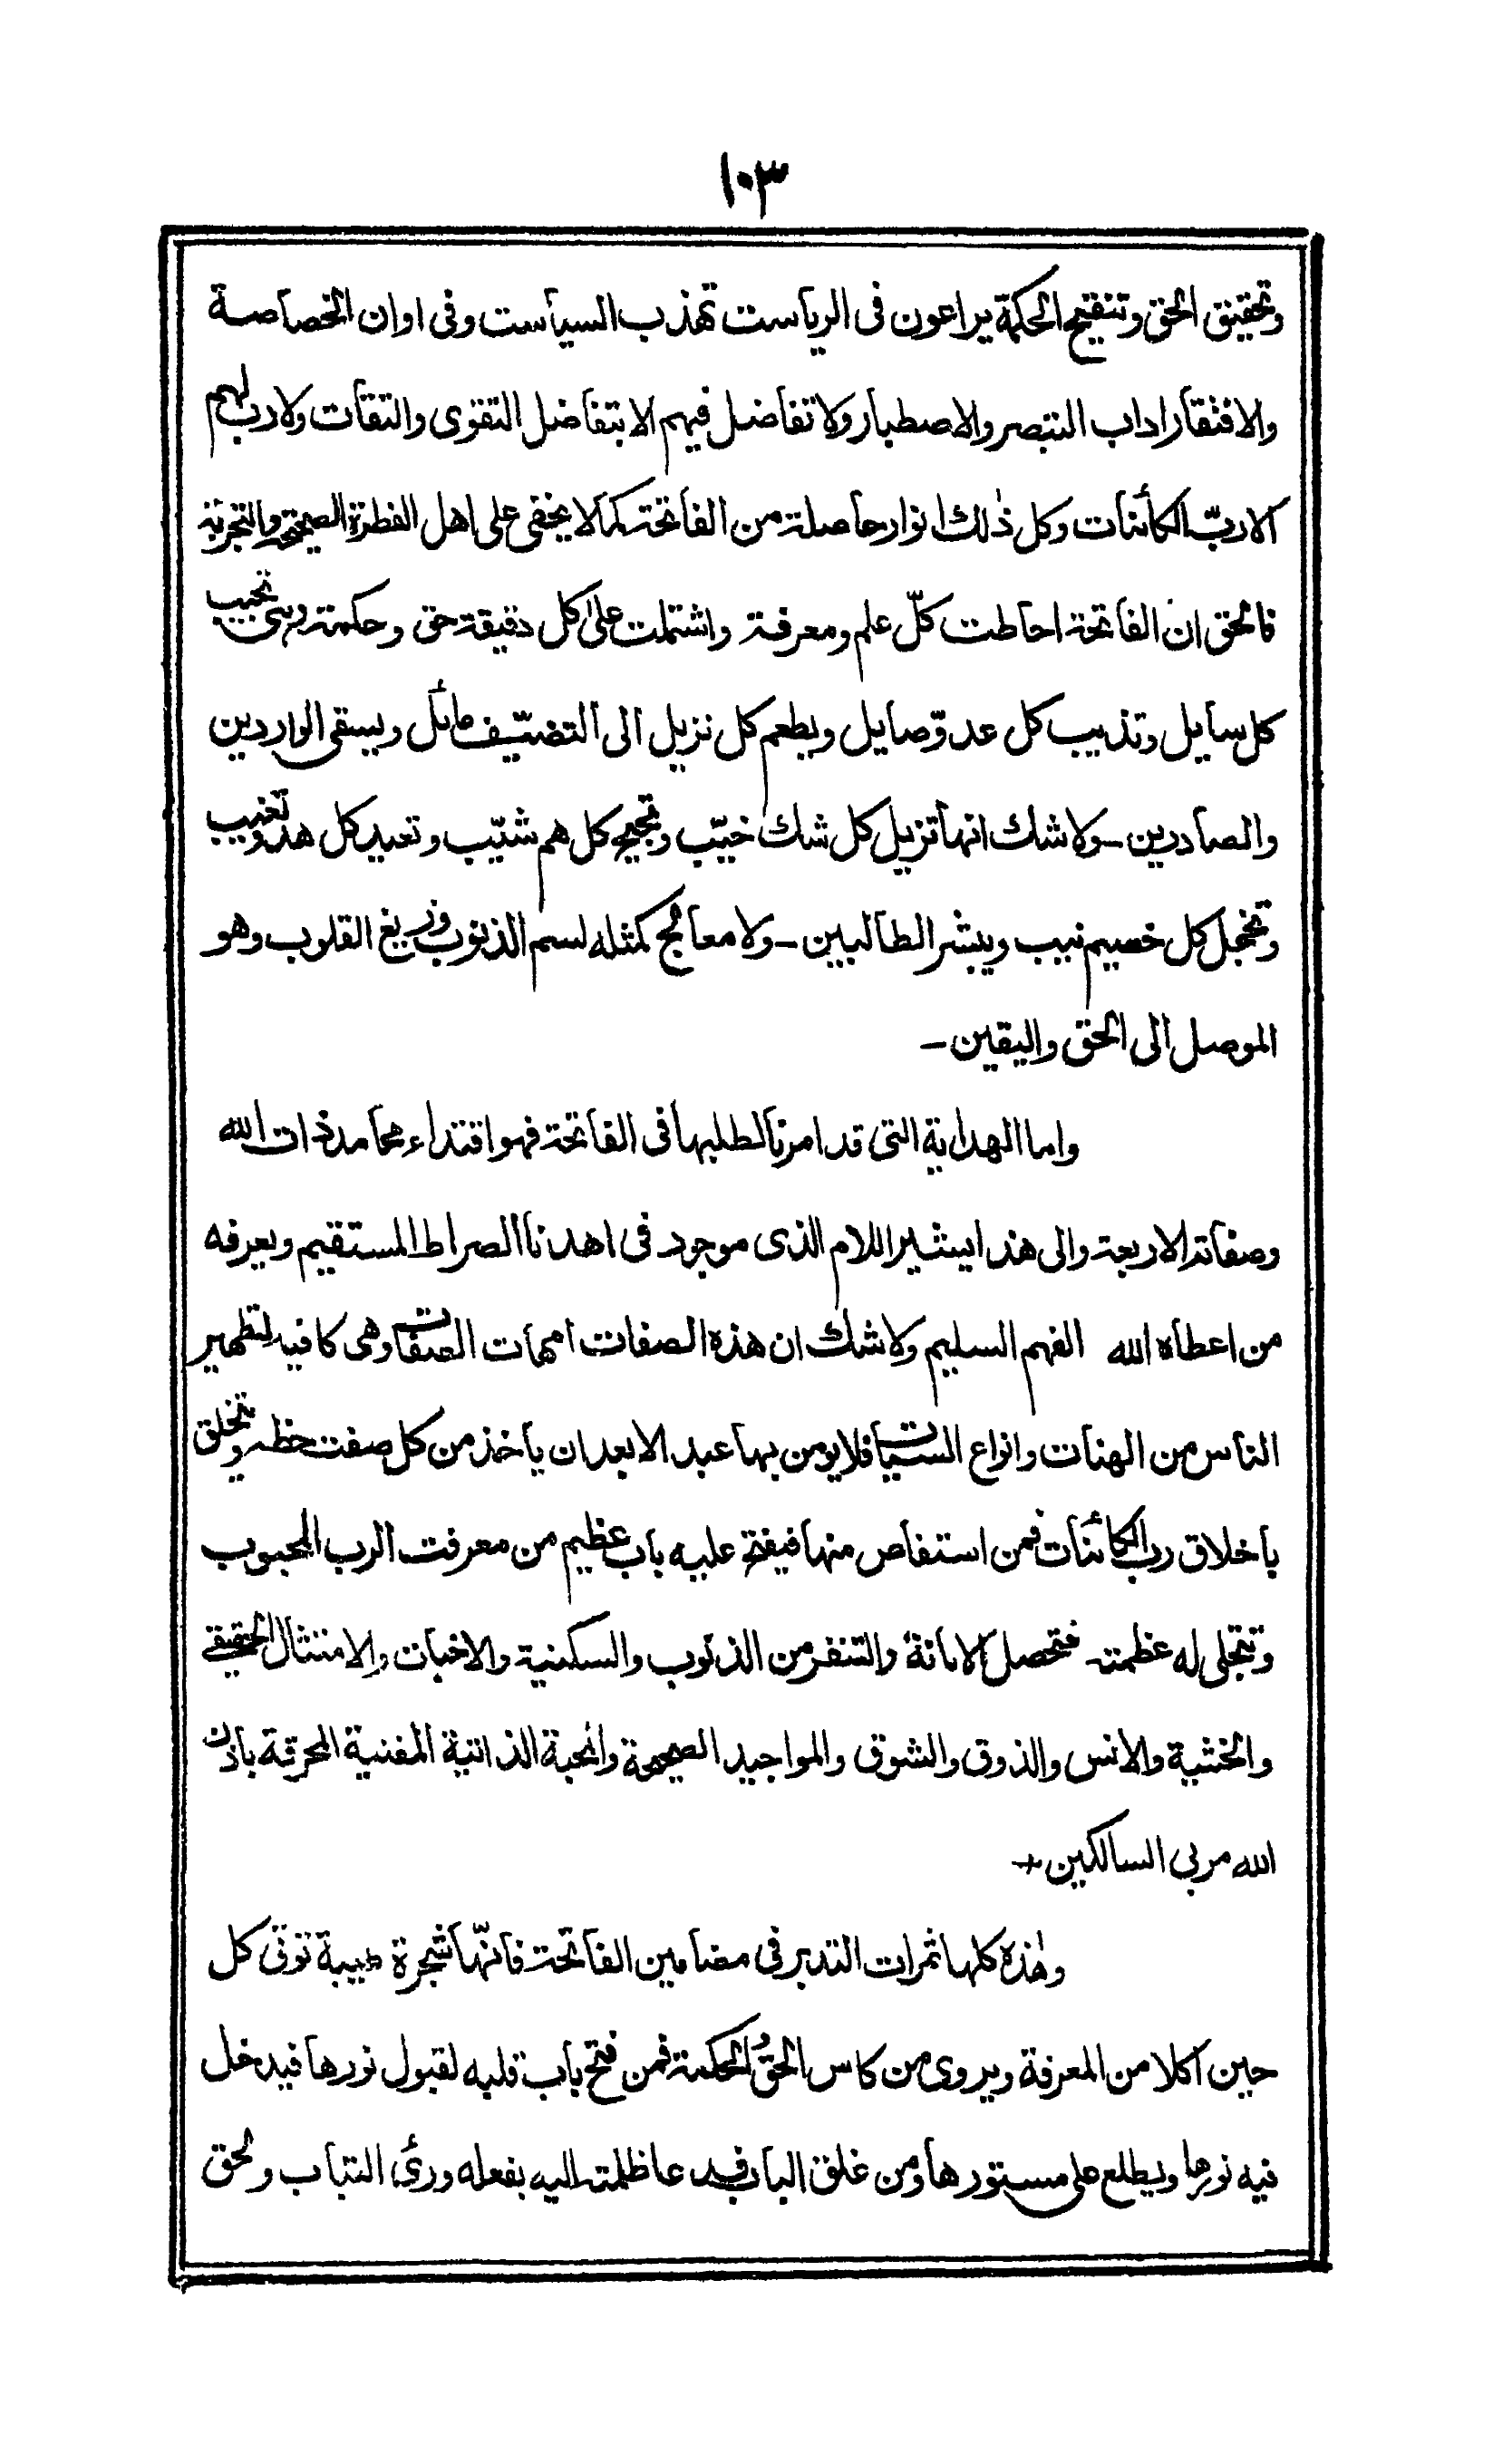 ١٠٣
وتحقيق الحق وتنقيح الحكمة يراعون فى الرياست تهذب السياست وفى اوان الخصاصة
والافتقار اداب التبصر والاصطبار ولا تفاضل فيهم الا بتفاضل التقوى والتقات ولا رب لهم
الا ربّ الكائنات وكل ذٰلك انوار حاصلة من الفاتحة كما لا يخفى على اهل الفطرة الصحيحة والتجربة
فالحق ان الفاتحة احاطت كلّ علم ومعرفة واشتملت علىٰ كل دقيقة حق وحكمة وهى تجيب
كل سايل وتذيب كل عدوّ صايل ويطعم كل نزيل الى التضيّف مائل ويسقى الواردين
والصادرين ـ ولا شك انها تزيل كل شك خيّب وتجيح كل هم شيّب وتعيد كل هدو تغيب
وتخجل كل خصيم نيب ويبشر الطالبين ـ ولا معالج كمثله لسم الذنوب وزيغ القلوب وهو
الموصل الى الحق واليقين ـ
واما الهداية التى قد امرنا لطلبها فى الفاتحة فهو اقتداء محامد ذات الله
وصفاته الاربعة والى هذا يشير اللام الذى موجود فى اهدنا الصراط المستقيم ويعرفه
من اعطاه الله الفهم السليم ولا شك ان هذه الصفات امهات الصفات وهى كافية لتطهير
الناس من الهنات وانواع السيات فلا يومن بها عبد الا بعد ان ياخذ من كل صفت حظه ويتخلق
باخلاق رب الكائنات فمن استفاض منها فيفتح عليه باب عظيم من معرفت الرب المحبوب
وتتجلى له عظمته فتحصل الامانة والتنفر من الذنوب والسكينة والاخبات والامتثال الحقيقى
والخشية والانس والذوق والشوق والمواجيد الصحيحة والمحبة الذاتية المفنية المحرقة باذن
الله مربى السالكين +
وهٰذه كلها ثمرات التدبر فى مضامين الفاتحة فانّها شجرة طيبة توتى كل
حين اكلا من المعرفة ويروى من كاس الحق والحكمة فمن فتح باب قلبه لقبول نورها فيدخل
فيه نورها ويطلع على مستورها ومن غلق الباب فدعا ظلمته اليه بفعله ورئ التباب ولحق